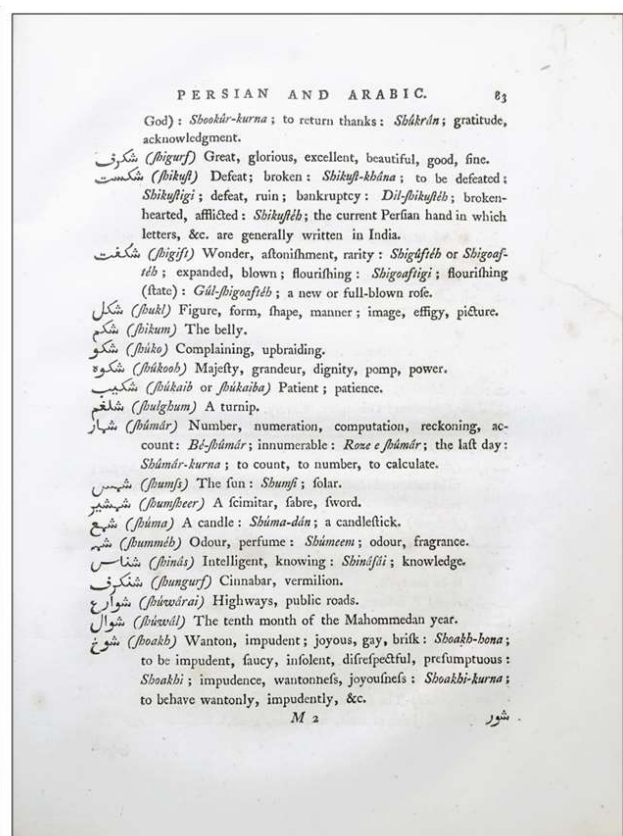 PERSIAN AND ARABIC. 83
God) : Shookúr-kurna ; to return thanks : Shúkrán ; gratitude,
acknowledgment.
شكرف (ſhigurf) Great, glorious, excellent, beautiful, good, fine.
شكست (ſhikuſt) Defeat ; broken : Shikuſt-khána ; to be defeated ;
Shikuſtigi ; defeat, ruin ; bankruptcy : Dil-ſhikuſtéh ; broken-
hearted, afflicted : Shikuſtéh ; the current Perſian hand in which
letters, &c. are generally written in India.
شكفت (ſhigift) Wonder, aſtoniſhment, rarity : Shigúftéh or Shigoaf-
téh ; expanded, blown ; flouriſhing : Shigoaftigi ; flouriſhing
(ſtate) : Gúl-ſhigoaftéh ; a new or full-blown roſe.
شكل (ſhukl) Figure, form, ſhape, manner ; image, effigy, picture.
شكم (ſhikum) The belly.
شكو (ſhúko) Complaining, upbraiding.
شكوه (ſhúkooh) Majeſty, grandeur, dignity, pomp, power.
شكيب (ſhúkaib or ſhúkaiba) Patient ; patience.
شلغم (ſhulghum) A turnip.
شمار (ſhúmár) Number, numeration, computation, reckoning, ac-
count : Bé-ſhúmár ; innumerable : Roze e ſhúmár ; the laſt day :
Shúmár-kurna ; to count, to number, to calculate.
شمس (ſhumſs) The ſun : Shumſi ; ſolar.
شمشير (ſhumſheer) A ſcimitar, ſabre, ſword.
شمع (ſhúma) A candle : Shúma-dán ; a candleſtick.
شمه (ſhumméh) Odour, perfume : Shúmeem ; odour, fragrance.
شناس (ſhinás) Intelligent, knowing : Shináſái ; knowledge.
شنكرف (ſhungurf) Cinnabar, vermilion.
شوارع (ſhúwárai) Highways, public roads.
شوال (ſhúwál) The tenth month of the Mahommedan year.
شوخ (ſhoakh) Wanton, impudent ; joyous, gay, briſk : Shoakh-hona ;
to be impudent, ſaucy, inſolent, diſreſpectful, preſumptuous :
Shoakhi ; impudence, wantonneſs, joyouſneſs : Shoakhi-kurna ;
to behave wantonly, impudently, &c.
M 2 شور